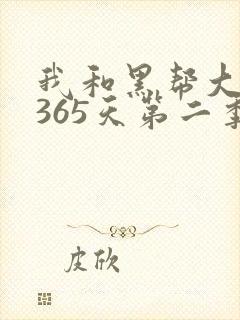 我和黑帮大
365天第二季
皮欣